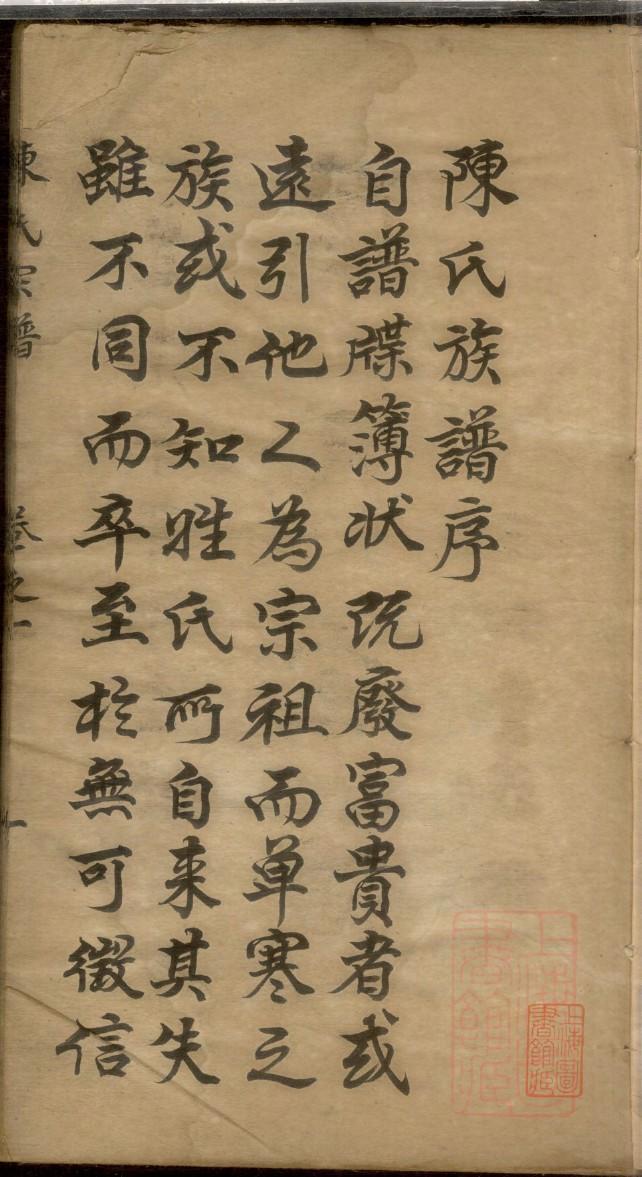 陳氏族譜序
自譜牒簿状既廢富貴者或
遠引他人為宗祖而单寒之
族或不知姓氏所自来其失
雖不同而卒至於無可徵信
陳氏宗譜 卷之一 一
上海圖書館藏
上海圖書館藏